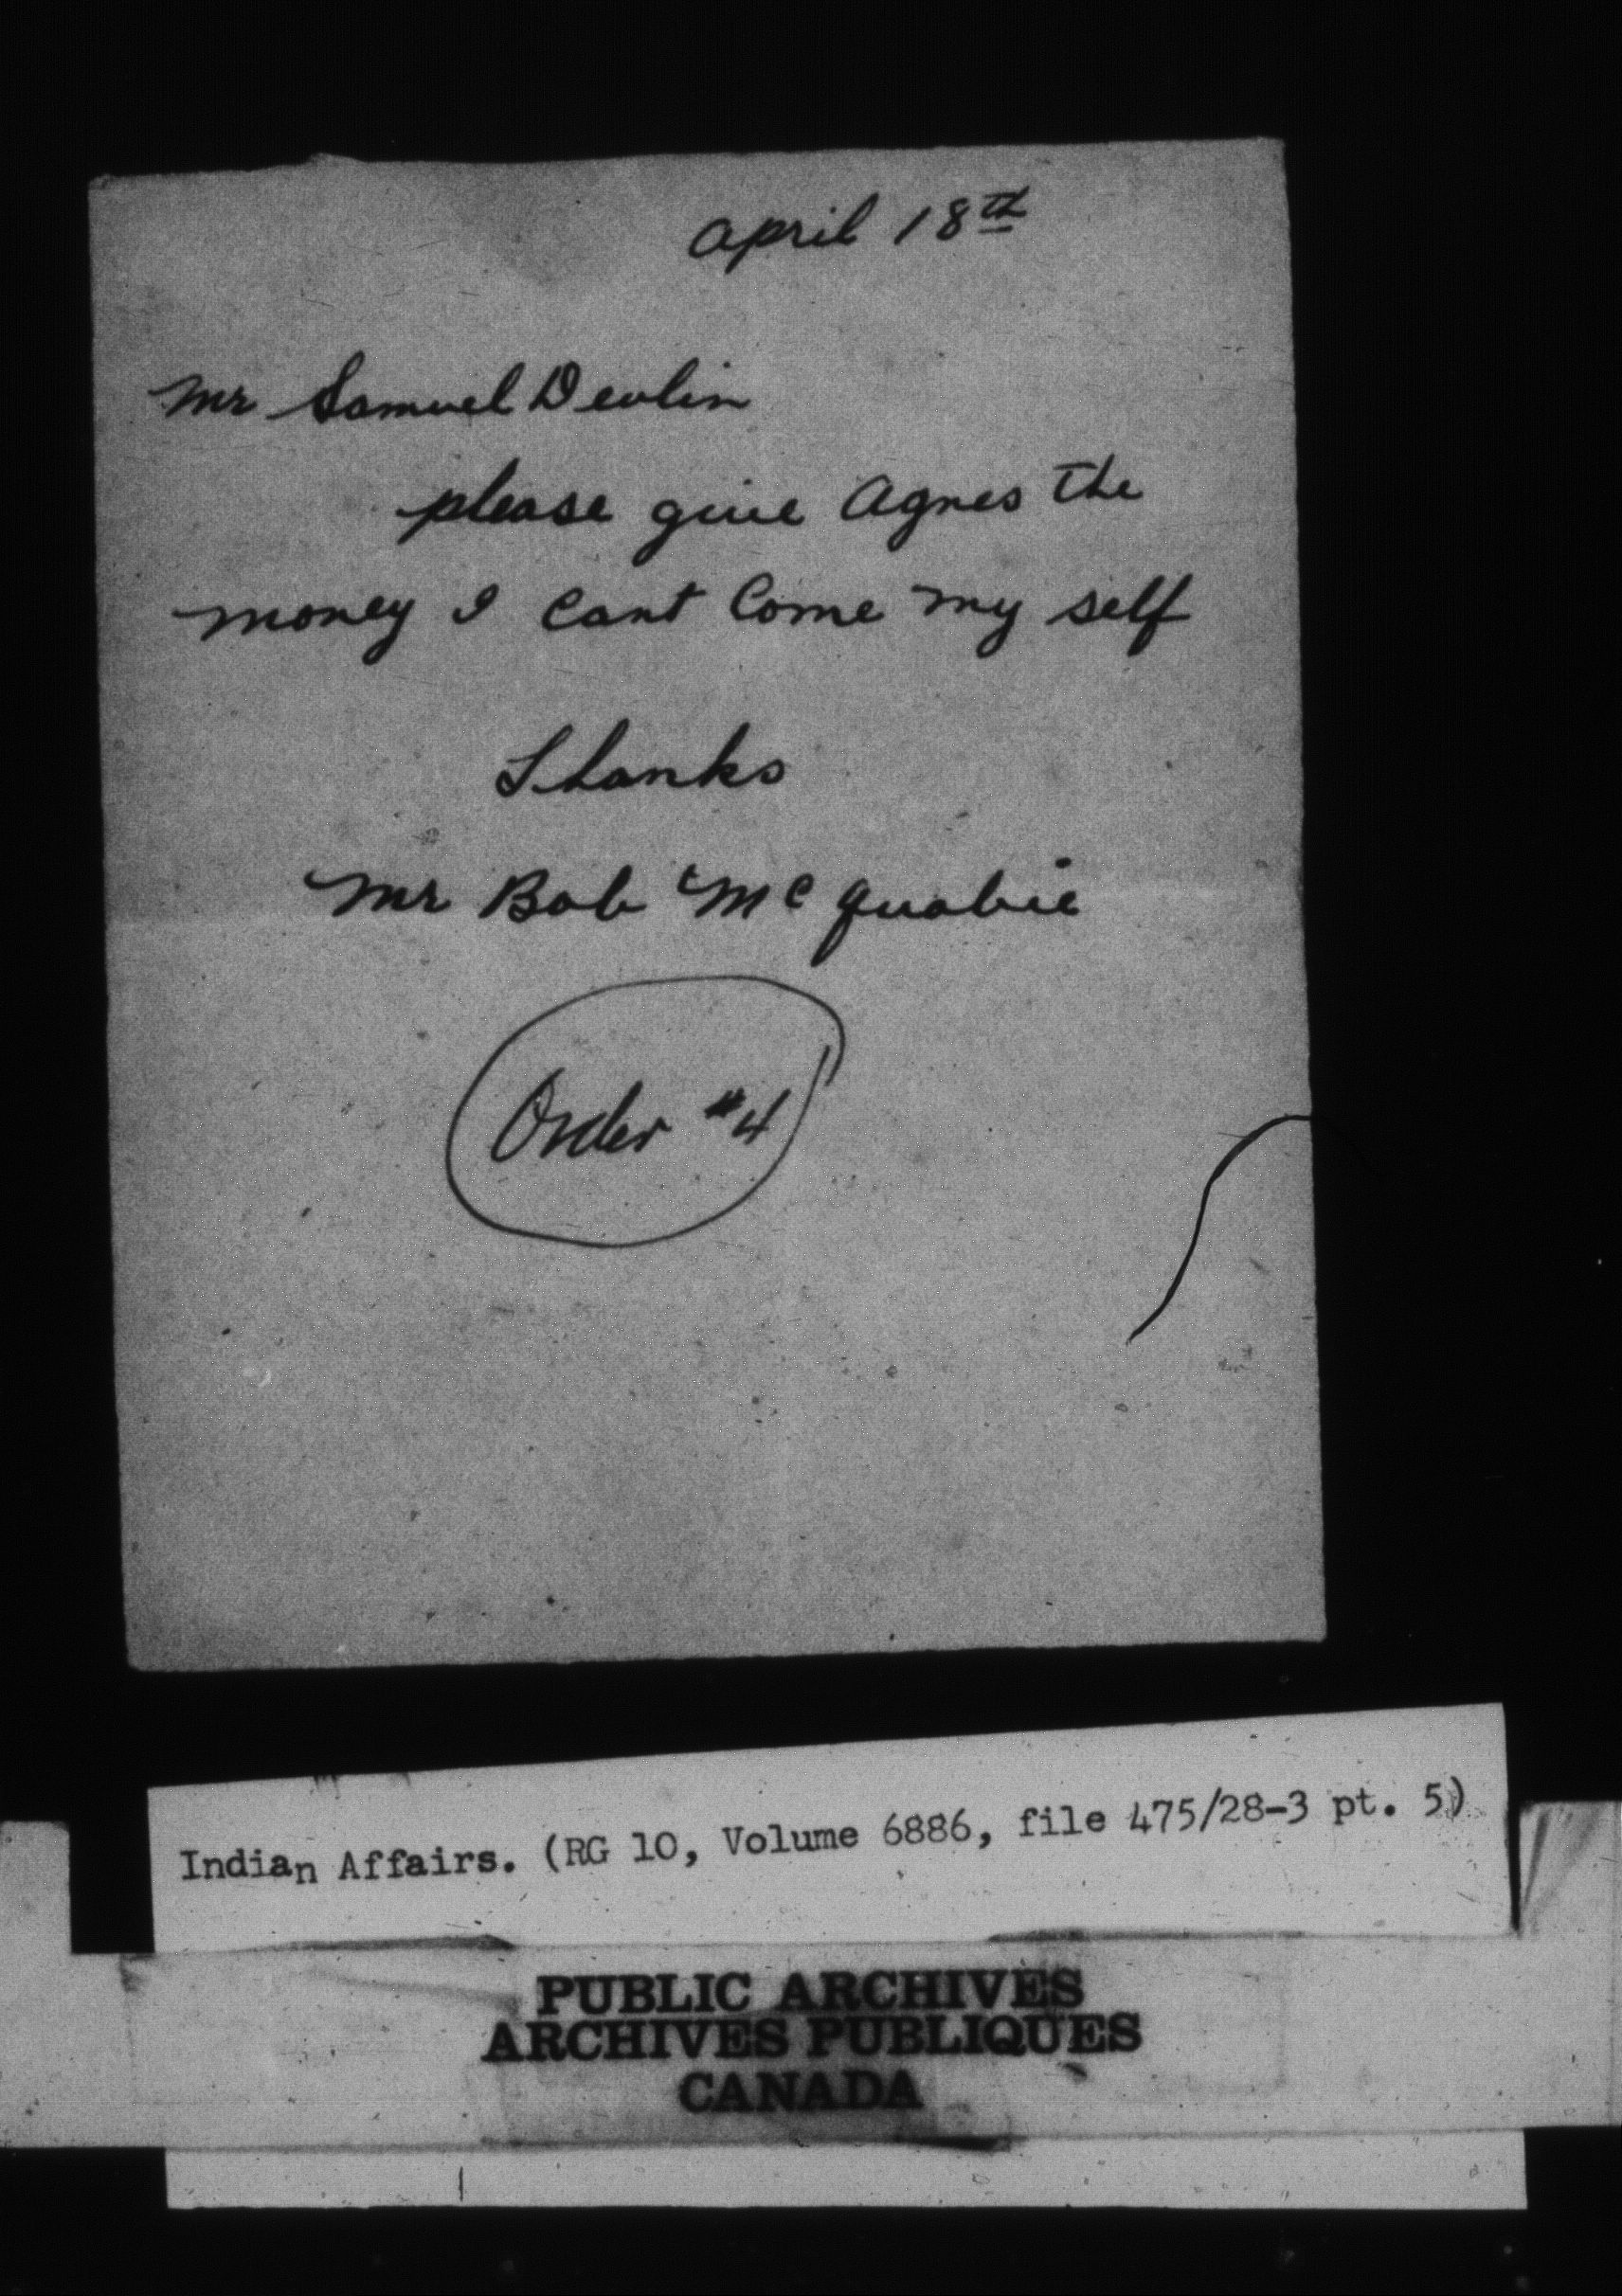 April 18th
Mr Samuel Devlin
please give Agnes the
money I cant Come my self
Thanks
Mr Bob Mc Quabie
Order #4
Indian Affairs. (RG 10, Volume 6886, file 475/28-3 pt. 5)
PUBLIC ARCHIVES
ARCHIVES PUBLIQUES
CANADA